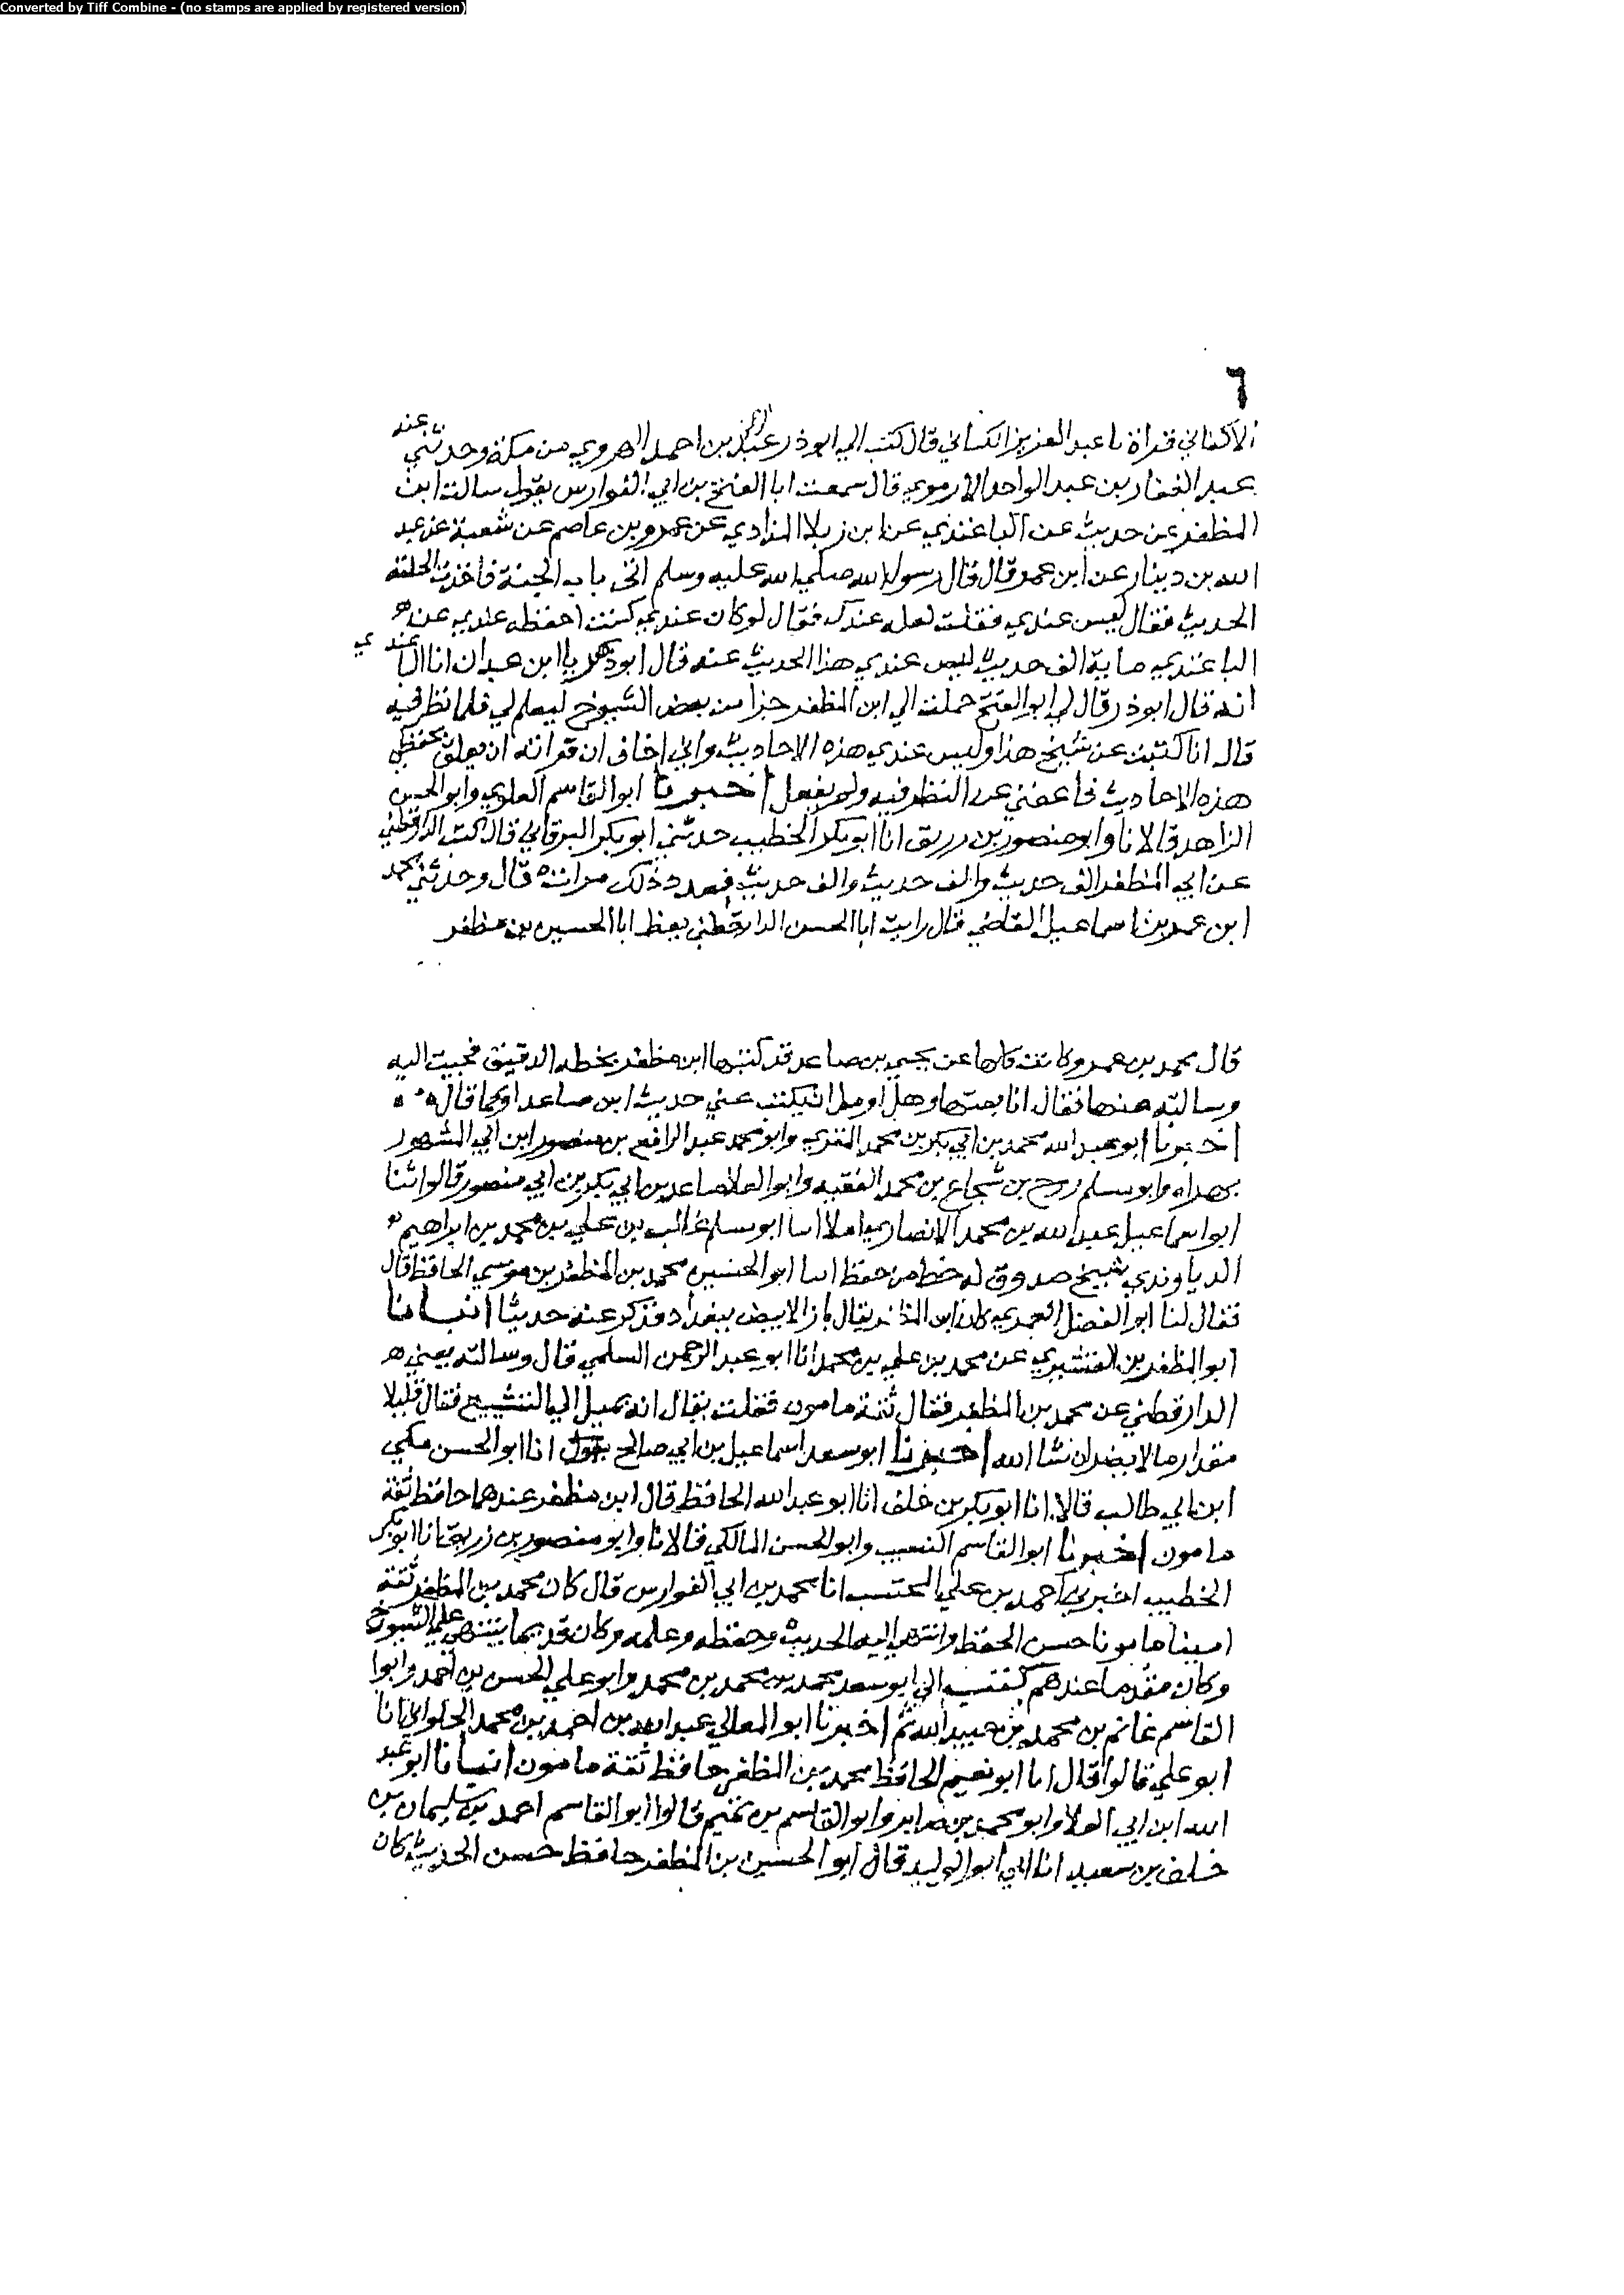 Converted by Tiff Combine - (no stamps are applied by registered version)
٦
الاكفاني قراة نا عبد العزيز الكتاني قال كتب الي ابو ذر عبد بن احمد الهروي من مكة وحدثني عنه
عبد الغفار بن عبد الواحد الارموي قال سمعت ابا الفتح بن ابي الفوارس يقول سالت ابن
المظفر عن حديث عن الباغندي عن ابن زيد المنادي عن عمرو بن عاصم عن شعبة عن عبد
الله بن دينار عن ابن عمر قال قال رسول الله صلي الله عليه وسلم اتي باب الجنة فاخذت الحلقة
الحديث فقال ليس عندي فقلت لعله عندك فقال لو كان عندي كنت احفظه عندي عن
الباغندي ماية الف حديث ليس عندي هذا الحديث عنه قال ابو ذر
انه قال ابو ذر قال لي ابو الفتح حملت الي ابن المظفر جزا من بعض الشيوخ ليعلم لي فلما نظر فيه
قال انا كتبت عن شيخ هذا وليس عندي هذه الاحاديث واني اخاف ان قراته ان يعلق بحفظي
هذه الاحاديث فاعفني عن النظر فيه ولم يفعل اخبرنا ابو القاسم العلوي وابو الحسن
الزاهد قالا نا وابو منصور بن زريق انا ابو بكر الخطيب حدثني ابو بكر البرقاني قال كتب الدارقطني
عن ابي المظفر الف حديث والف حديث والف حديث فعدد ذلك مرات ه قال وحدثني محمد
ابن عمر بن اسماعيل القاضي قال رايت ابا الحسن الدارقطني يعظ ابا الحسين بن مظفر
قال محمد بن عمر وكانت كلها عن يحيي بن صاعد قد كتبها ابن مظفر بخطه الدقيق فجيت اليه
وسالته عنها فقال انا بعتها وهل اومل ان يكتب عني حديث ابن صاعد او كما قال
اخبرنا ابو عبد الله محمد بن ابي بكر بن محمد المقري وابو محمد عبد الرافع بن منصور ابن ابي المشهور
بهراه وابو مسلم روح بن شجاع بن محمد الفقيه وابو العلا صاعد بن ابي بكر بن ابي منصور قالوا اثنا
ابو اسماعيل عبد الله بن محمد الانصاري املا انا ابو مسلم غالب بن علي بن محمد بن ابراهيم
الدياوندي شيخ صدوق له خط من حفظ انا ابو الحسين محمد بن المظفر بن موسي الحافظ قال
فقال لنا ابو الفضل العمري كان ابن المظفر يقال باز الابيض ببغداد فذكر عنه حديثا انبانا
ابو المظفر بن القشيري عن محمد بن علي بن محمد انا ابو عبد الرحمن السلمي قال وسالته يعني
الدارقطني عن محمد بن المظفر فقال ثقة مامون فقلت يقال انه يميل الي التشيع فقال قليلا
مقدار ما لا يضر ان شا الله اخبرنا ابو سعد اسماعيل بن ابي صالح انا ابو الحسن مكي
ابن ابي طالب قالا انا ابو بكر بن خلف انا ابو عبد الله الحافظ قال ابن مظفر عندهما حافظ ثقة
مامون اخبرنا ابو القاسم النسيب وابو الحسن المالكي قالا نا وابو منصور بن زريق انا ابو بكر
الخطيب اخبرني احمد بن علي المحتسب انا محمد بن ابي الفوارس قال كان محمد بن المظفر ثقة
امينا مامونا حسن الحفظ وانتهي اليه الحديث وحفظه وعلمه وكان قديما ينتقي علي الشيوخ
وكان مقدما عندهم كتب الي ابو سعد محمد بن محمد بن محمد وابو علي الحسن بن احمد وابوا
القاسم غانم بن محمد بن عبيد الله ثم اخبرنا ابو المعالي عبد الله بن احمد بن محمد الحلواني انا
ابو علي قالوا قال انا ابو نعيم الحافظ محمد بن المظفر حافظ ثقة مامون انبانا ابو عبد
الله ابن ابي العلا وابو محمد بن صابر وابو القاسم بن تميم قالوا ابو القاسم احمد بن سليمان بن
خلف بن سعيد انا ابي ابو الوليد قال ابو الحسين بن المظفر حافظ حسن الحديث كان